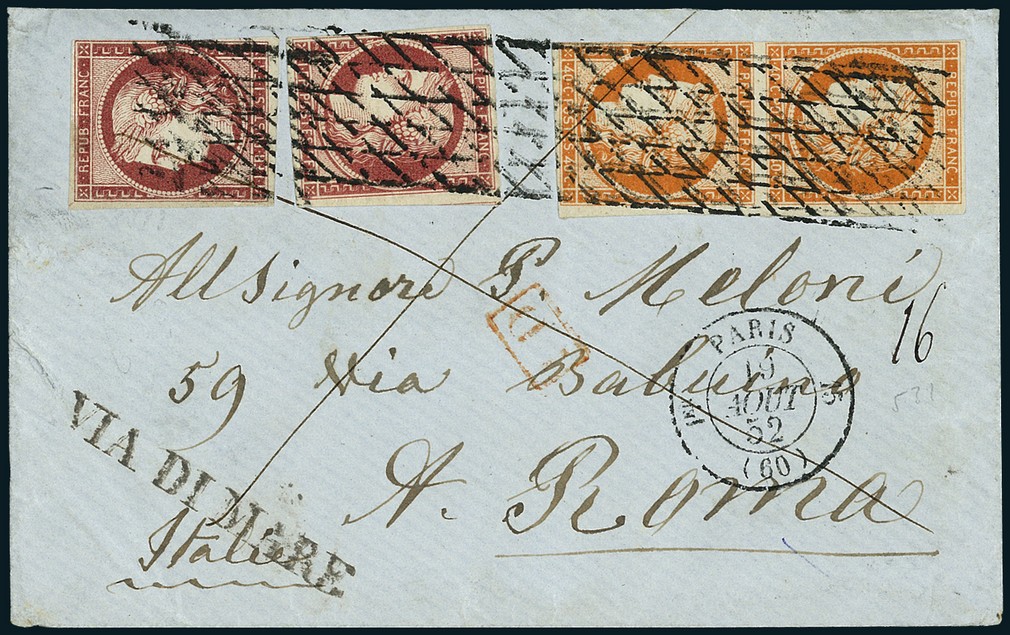 REPUB FRANC
REPUB FRANC
40 C POSTES 40 C
REPUB FRANC
All Signore P. Meloni
16
59 Via Babuino
PARIS
15
AOUT
52
(60)
531
VIA DI MARE
A. Roma
Italie